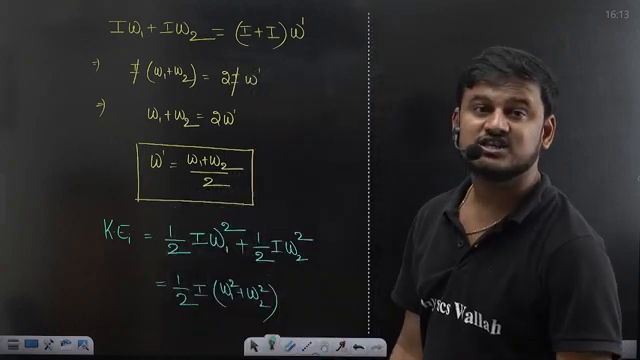 16:13
Iω₁ + Iω₂ = (I + I)ω'
⇒ I(ω₁+ω₂) = 2Iω'
⇒ ω₁+ω₂ = 2ω'
ω' = (ω₁+ω₂)/2
K.E₁ = 1/2 Iω₁² + 1/2 Iω₂²
= 1/2 I (ω₁² + ω₂²)
Wallah